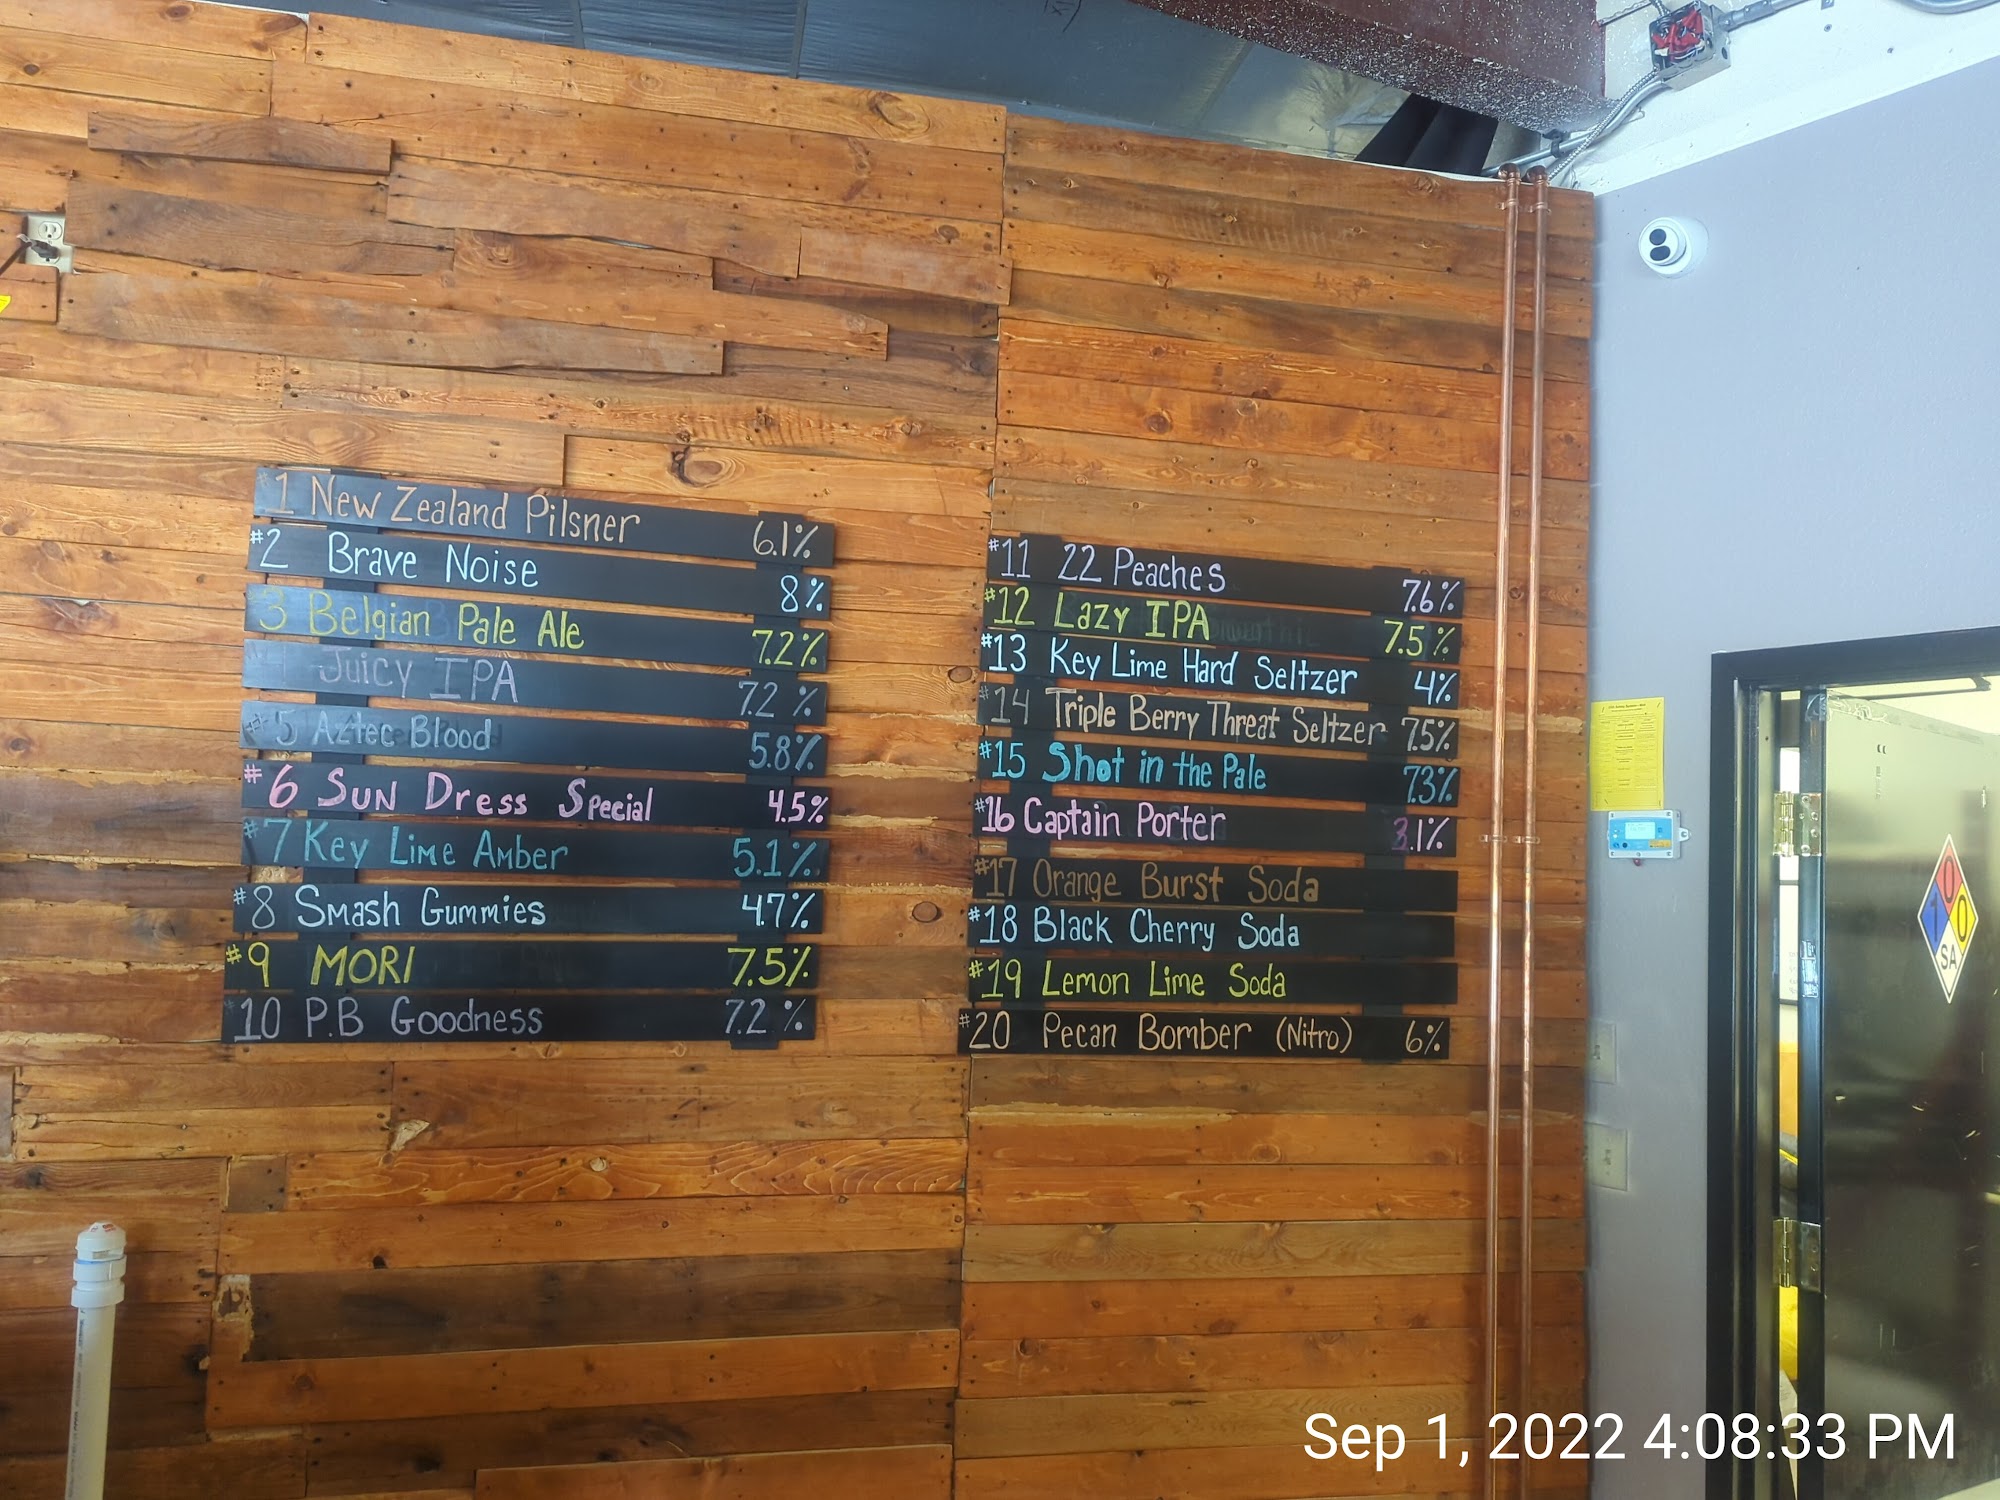 #1 New Zealand Pilsner 6.1%
#2 Brave Noise 8%
3 Belgian Pale Ale 7.2%
#4 Juicy IPA 7.2 %
#5 Aztec Blood 5.8%
#6 Sun Dress Special 4.5%
#7 Key Lime Amber 5.1%
#8 Smash Gummies 4.7%
#9 MORI 7.5%
#10 P.B Goodness 7.2 %
#11 22 Peaches 7.6%
#12 Lazy IPA 7.5%
#13 Key Lime Hard Seltzer 4%
#14 Triple Berry Threat Seltzer 7.5%
#15 Shot in the Pale 7.3%
#16 Captain Porter
#17 Orange Burst Soda
#18 Black Cherry Soda
#19 Lemon Lime Soda
#20 Pecan Bomber (Nitro) 6%
0
1 0
SA
Sep 1, 2022 4:08:33 PM